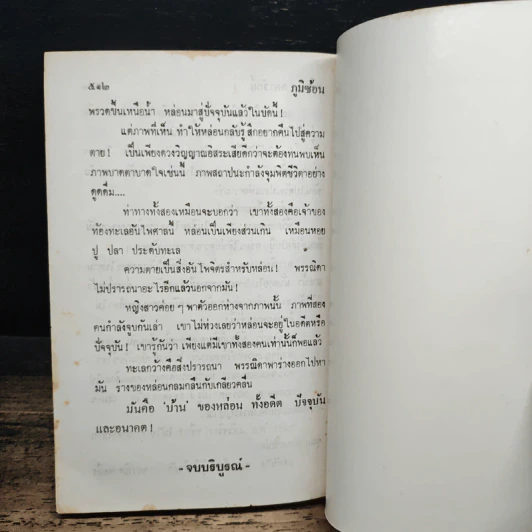 ๕๑๒ ภูมิซ้อน
พรวดขึ้นเหนือน้ำ หล่อนมาสู่ปัจจุบันแล้วในบัดนี้!
แต่ภาพที่เห็น ทำให้หล่อนกลับรู้สึกอยากคืนไปสู่ความ
ตาย! เป็นเพียงดวงวิญญาณอิสระเสียดีกว่าจะต้องทนพบเห็น
ภาพบาดตาบาดใจเช่นนี้ ภาพสถาปนะกำลังจุมพิตชีวิตาอย่าง
ดูดดื่ม....
ท่าทางทั้งสองเหมือนจะบอกว่า เขาทั้งสองคือเจ้าของ
ท้องทะเลอันไพศาลนี้ หล่อนเป็นเพียงส่วนเกิน เหมือนหอย
ปู ปลา ประดับทะเล
ความตายเป็นสิ่งอันไพจิตรสำหรับหล่อน! พรรณิดา
ไม่ปรารถนาอะไรอีกแล้วนอกจากมัน!
หญิงสาวค่อย ๆ พาตัวออกห่างจากภาพนั้น ภาพที่สอง
คนกำลังจูบกันเล่า เขาไม่ห่วงเลยว่าหล่อนจะอยู่ในอดีตหรือ
ปัจจุบัน! เขารู้กันว่า เพียงแต่มีเขาทั้งสองคนเท่านั้นก็พอแล้ว
ทะเลกว้างคือสิ่งปรารถนา พรรณิดาพาร่างออกไปหา
มัน ร่างของหล่อนกลมกลืนกับเกลียวคลื่น
มันคือ 'บ้าน' ของหล่อน ทั้งอดีต ปัจจุบัน
และอนาคต!
- จบบริบูรณ์ -